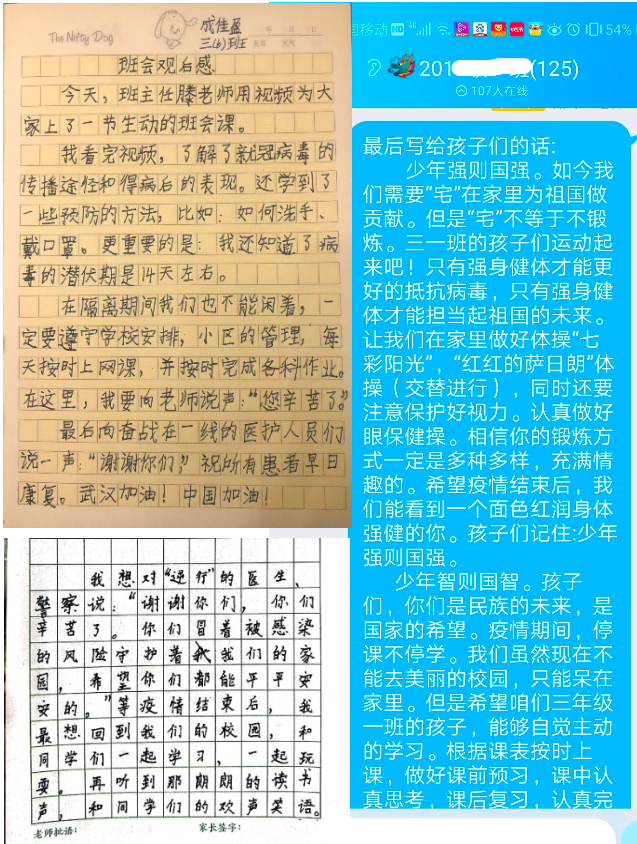 The Nifty Dog
成佳盈
三(6)班
年 月 日
星期 天气
班会观后感
今天，班主任滕老师用视频为大
家上了一节生动的班会课。
我看完视频，了解了新冠病毒的
传播途径和得病后的表现。还学到了
一些预防的方法，比如：如何洗手、
戴口罩。更重要的是：我还知道了病
毒的潜伏期是14天左右。
在隔离期间我们也不能闲着，一
定要遵守学校安排，小区的管理，每
天按时上网课，并按时完成各科作业。
在这里，我要向老师说声：“您辛苦了。”
最后向奋战在一线的医护人员们
说一声：“谢谢你们，”祝所有患者早日
康复。武汉加油！中国加油！
我想对“逆行”的医生、
警察说：“谢谢你们，你们
辛苦了。你们冒着被感染
的风险守护着我们的家
园，希望你们都能平平安
安的。”等疫情结束后，我
最想回到我们的校园，和
同学们一起学习，一起玩
耍。再听到那朗朗的读书
声，和同学们的欢声笑语。
老师批语： 家长签字：
国移动 HD 46 54%
201 班(125)
107人在线
最后写给孩子们的话:
少年强则国强。如今我
们需要“宅”在家里为祖国做
贡献。但是“宅”不等于不锻
炼。三一班的孩子们运动起
来吧！只有强身健体才能更
好的抵抗病毒，只有强身健
体才能担当起祖国的未来。
让我们在家里做好体操“七
彩阳光”，“红红的萨日朗”体
操（交替进行），同时还要
注意保护好视力。认真做好
眼保健操。相信你的锻炼方
式一定是多种多样，充满情
趣的。希望疫情结束后，我
们能看到一个面色红润身体
强健的你。孩子们记住:少年
强则国强。
少年智则国智。孩子
们，你们是民族的未来，是
国家的希望。疫情期间，停
课不停学。我们虽然现在不
能去美丽的校园，只能呆在
家里。但是希望咱们三年级
一班的孩子，能够自觉主动
的学习。根据课表按时上
课，做好课前预习，课中认
真思考，课后复习，认真完